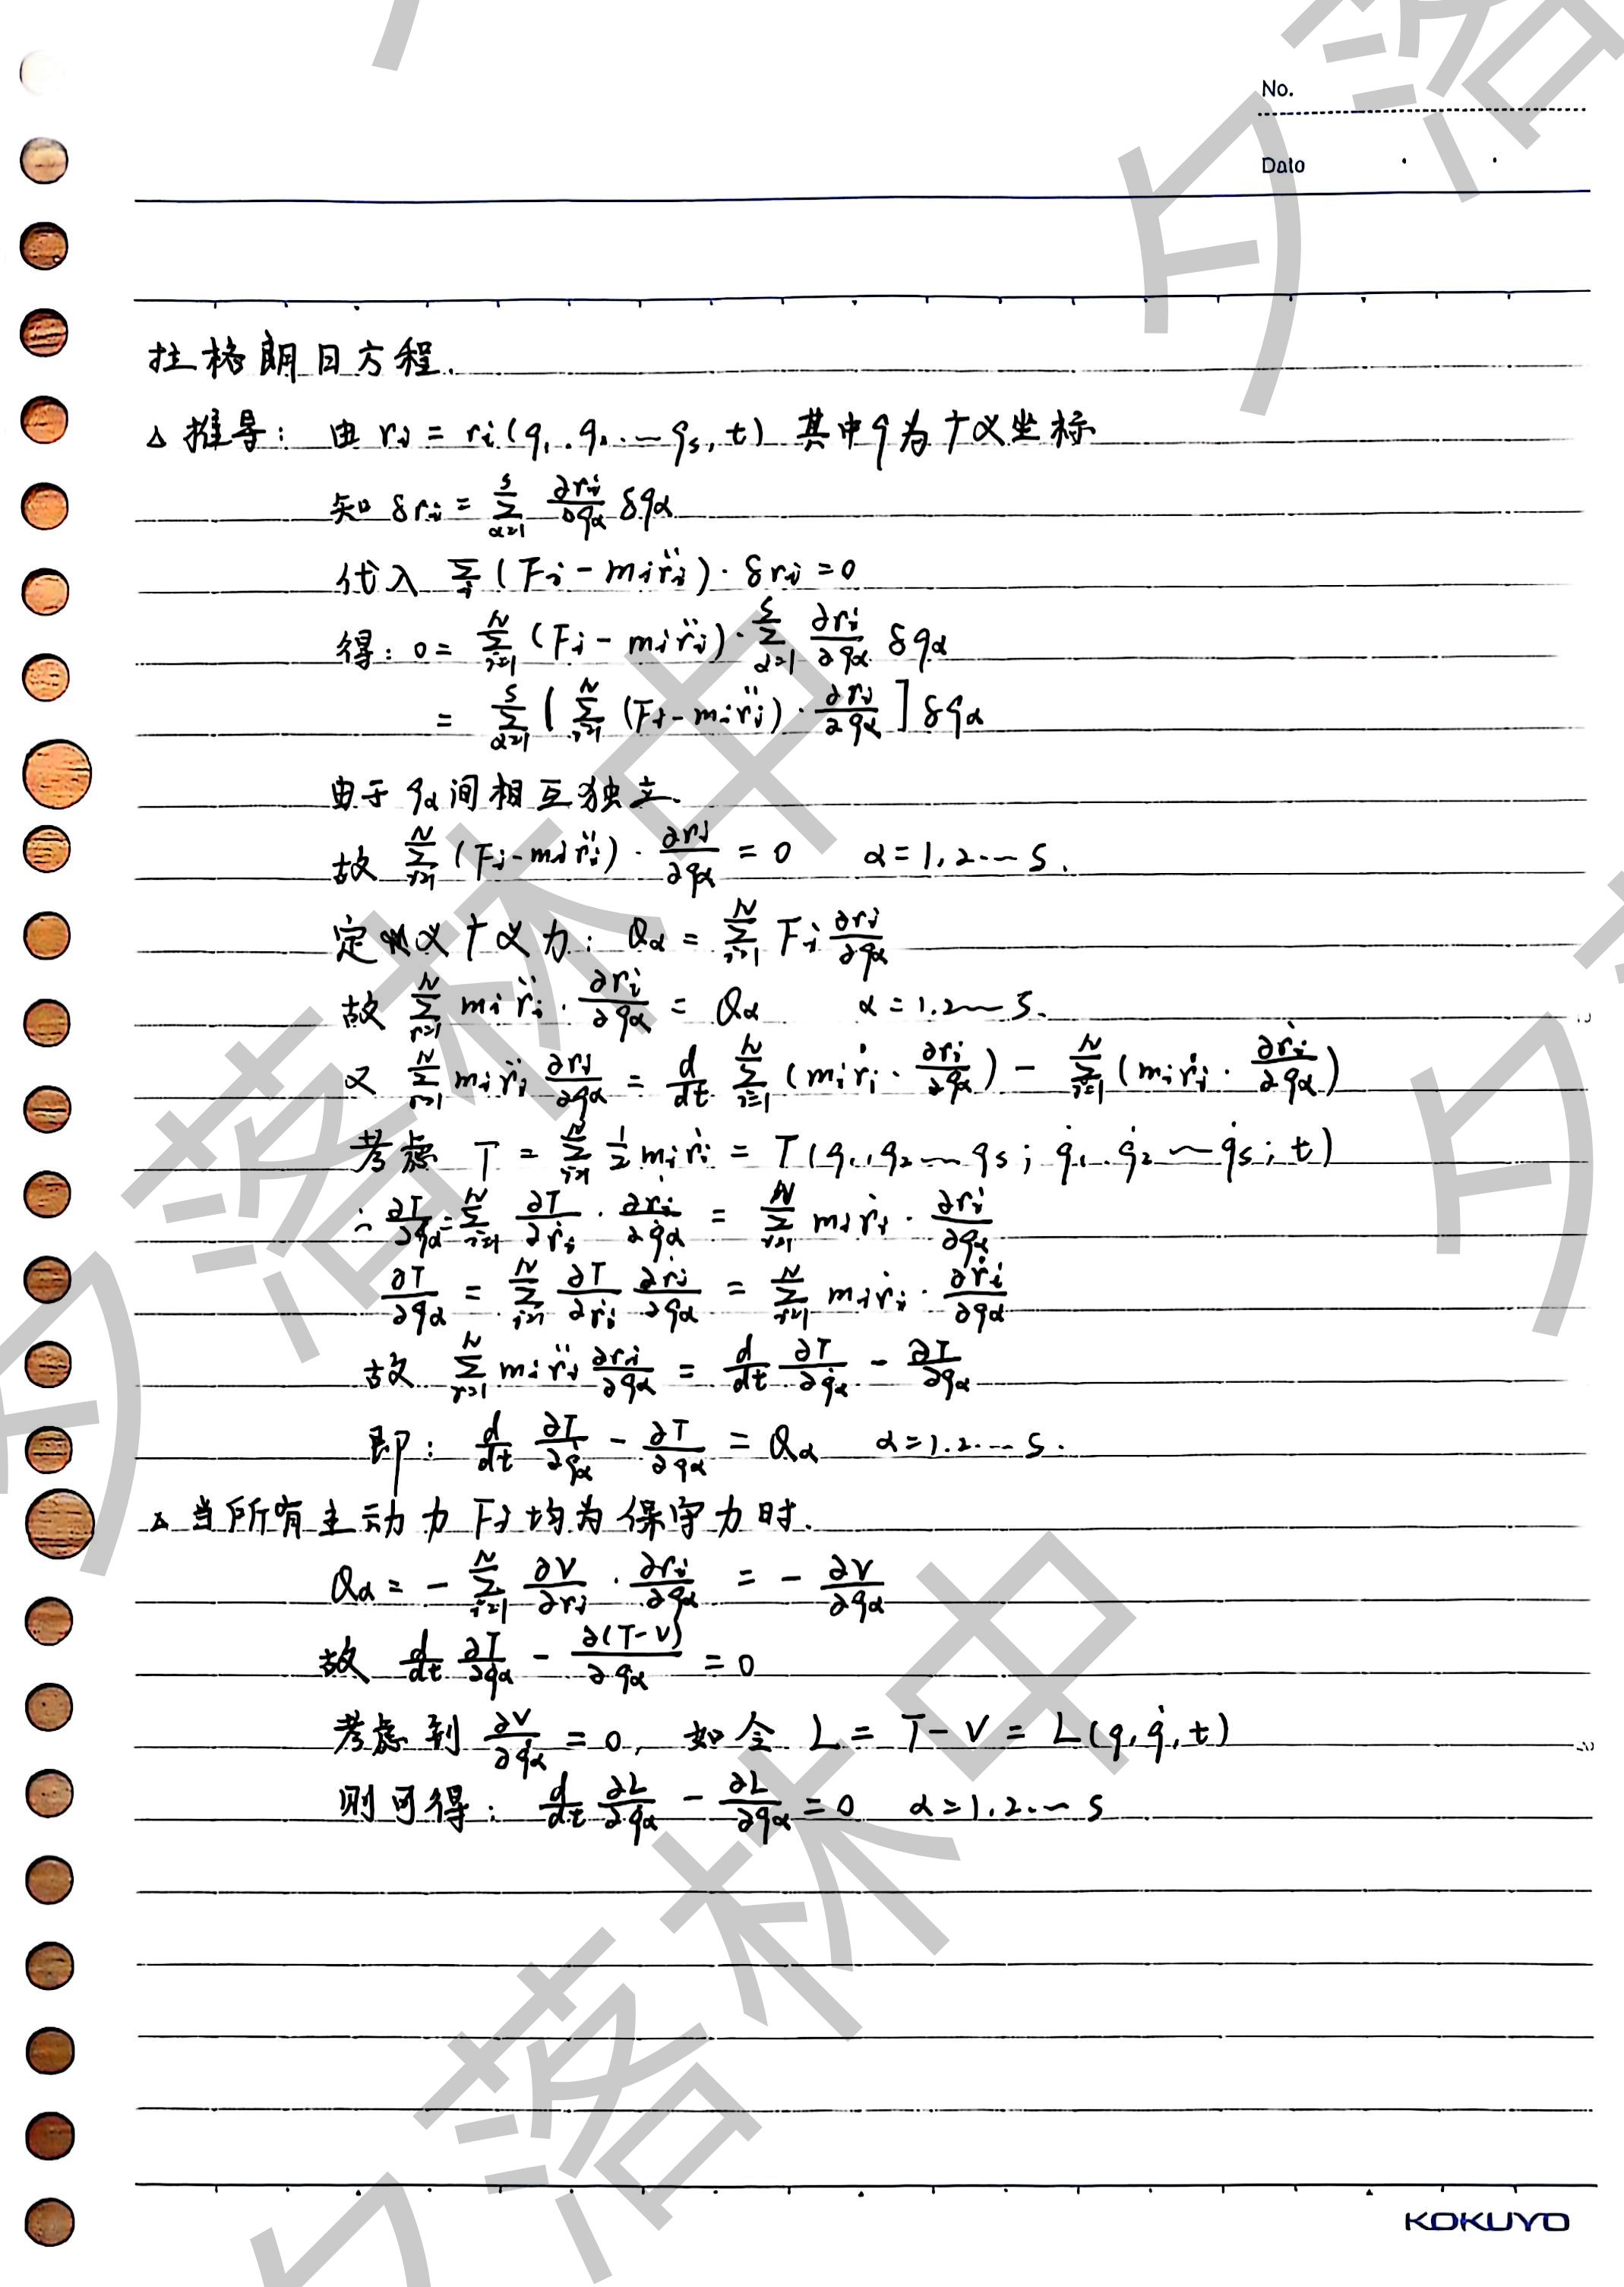 No.
Date
拉格朗日方程.
△推导: 由 rᵢ = rᵢ(q₁, q₂, … qₛ, t) 其中q为广义坐标
知 δrᵢ = Σ_{α=1}^{s} ∂rᵢ/∂qα δqα
代入 Σᵢ (Fᵢ - mᵢr̈ᵢ)·δrᵢ = 0
得: 0 = Σ_{i=1}^{N} (Fᵢ - mᵢr̈ᵢ)·Σ_{α=1}^{s} ∂rᵢ/∂qα δqα
= Σ_{α=1}^{s} [Σ_{i=1}^{N} (Fᵢ - mᵢr̈ᵢ)·∂rᵢ/∂qα] δqα
由于 qα间相互独立.
故 Σ_{i=1}^{N} (Fᵢ - mᵢr̈ᵢ)·∂rᵢ/∂qα = 0 α = 1, 2 … s.
定义广义力: Qα = Σ_{i=1}^{N} Fᵢ ∂rᵢ/∂qα
故 Σ_{i=1}^{N} mᵢr̈ᵢ·∂rᵢ/∂qα = Qα α = 1.2…s.
又 Σ_{i=1}^{N} mᵢr̈ᵢ ∂rᵢ/∂qα = d/dt Σ_{i=1}^{N} (mᵢṙᵢ·∂rᵢ/∂qα) - Σ_{i=1}^{N} (mᵢṙᵢ·∂ṙᵢ/∂qα)
考虑 T = Σ_{i=1}^{N} ½mᵢṙᵢ = T(q₁, q₂ … qₛ; q̇₁, q̇₂ … q̇ₛ; t)
∴ ∂T/∂q̇α = Σ_{i=1}^{N} ∂T/∂ṙᵢ·∂ṙᵢ/∂q̇α = Σ_{i=1}^{N} mᵢṙᵢ·∂rᵢ/∂qα
∂T/∂qα = Σ_{i=1}^{N} ∂T/∂ṙᵢ ∂ṙᵢ/∂qα = Σ_{i=1}^{N} mᵢṙᵢ·∂ṙᵢ/∂qα
故 Σ_{i=1}^{N} mᵢr̈ᵢ ∂rᵢ/∂qα = d/dt ∂T/∂q̇α - ∂T/∂qα
即: d/dt ∂T/∂q̇α - ∂T/∂qα = Qα α = 1.2.…s.
△当所有主动力 Fᵢ 均为保守力时.
Qα = - Σ_{i=1}^{N} ∂V/∂rᵢ·∂rᵢ/∂qα = - ∂V/∂qα
故 d/dt ∂T/∂q̇α - ∂(T-V)/∂qα = 0
考虑到 ∂V/∂q̇α = 0, 如令 L = T - V = L(q, q̇, t)
则可得: d/dt ∂L/∂q̇α - ∂L/∂qα = 0 α = 1.2.…s
KOKUYO
夕落林中
夕落林中